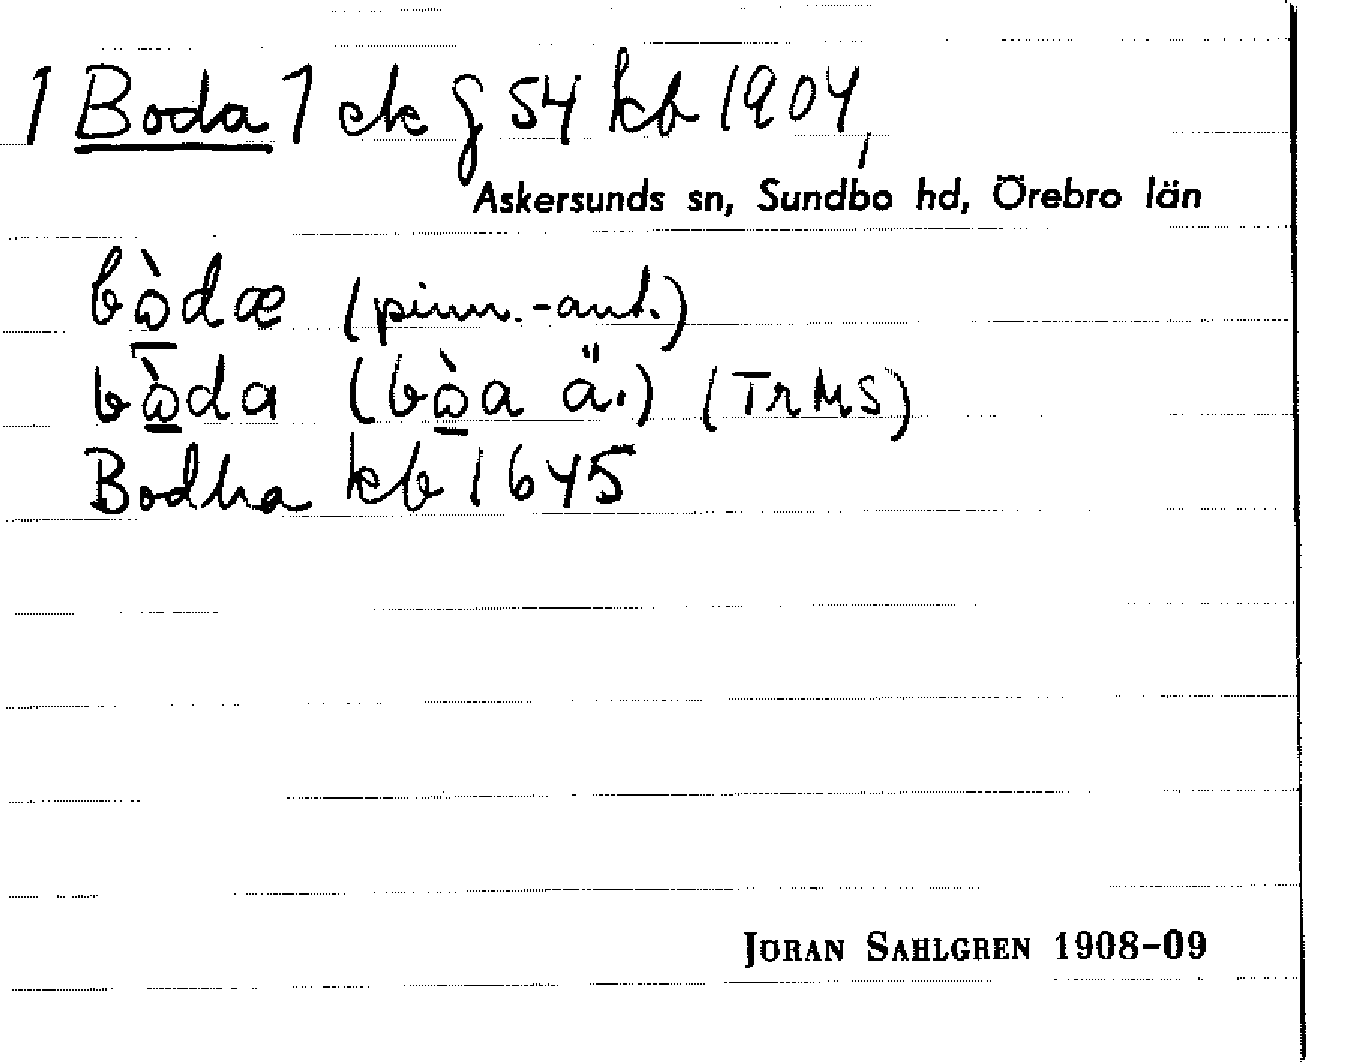 1 Boda 1 ek g 54 kb 1904,
Askersunds sn, Sundbo hd, Örebro län
bὼdæ (pinn.-ant.)
bὼda (bὼa ä.) (TRMS)
Bodha kb 1645
JÖRAN SAHLGREN 1908-09